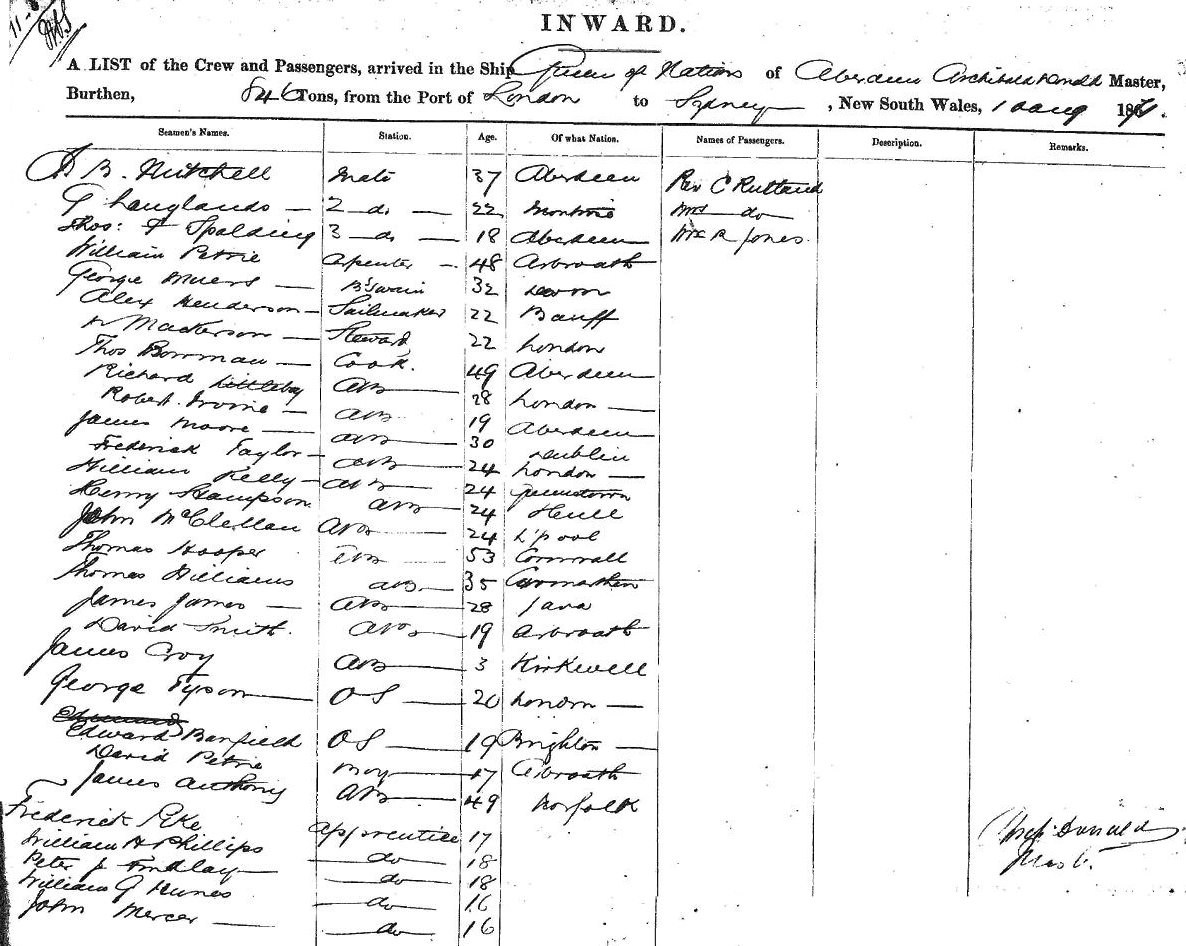 INWARD.
A LIST of the Crew and Passengers, arrived in the Ship Queen of Nations of Aberdeen Archibald Donald Master,
Burthen, 846 Tons, from the Port of London to Sydney, New South Wales, 10 Aug 187
Seamen's Names. Station. Age. Of what Nation. Names of Passengers. Description. Remarks.
B. Mitchell Mate 37 Aberdeen Rev C Rutland
G Langlands — 2 do — 22 Montrose Mrs do
Thos: F Spalding 3 do — 18 Aberdeen Mr R Jones
William Petrie Carpenter — 48 Arbroath
George Myers — B'swain 32 Devon
Alex Henderson — Sailmaker 22 Banff
Mackerson — Steward 22 London
Thos Bowman — Cook. 49 Aberdeen
Richard Littleboy AB 28 London —
Robert Irvine — AB 19 Aberdeen
James Moore — AB 30 Dublin
Frederick Taylor — AB 24 London —
William Kelly — AB 24 Queenstown
Henry Sampson AB 24 Hull
John McClellan AB 24 L'pool
Thomas Hooper AB 53 Cornwall
Thomas Williams AB 35 Carmarthen
James James — AB 28 Java
David Smith. AB 19 Arbroath
James Croy AB 3 Kirkwell
George Tyson OS 20 London —
Edward Banfield OS 19 Brighton —
David Petrie Boy 17 Arbroath
James Anthony AB 49 Norfolk
Frederick Eke Apprentice 17
William H Phillips do 18
Peter J Findlay do 18
William G do 16
John Mercer do 16
Arch Donald
Master